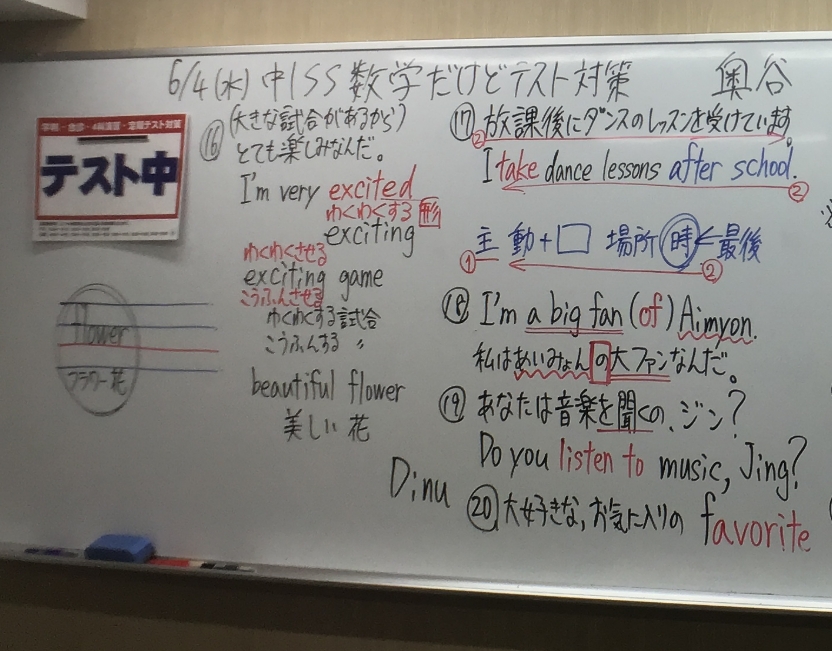 6/4(水) 中1SS 数学だけどテスト対策 奥谷
学判・㑹診・4科演習・定期テスト対策
テスト中
flower
フラワー 花
⑯ (大きな試合があるから)
とても楽しみなんだ。
I'm very excited
わくわくする 形
exciting
わくわくさせる
exciting game
こうふんさせる
わくわくする試合
こうふんする 〃
beautiful flower
美しい 花
Dinu
⑰ 放課後にダンスのレッスンを受けています。
②
I take dance lessons after school.
②
主 動+□ 場所 時 ← 最後
① ②
⑱ I'm a big fan (of) Aimyon.
私はあいみょんの大ファンなんだ。
⑲ あなたは音楽を聞くの、ジン?
Do you listen to music, Jing?
⑳ 大好きな, お気に入りの favorite